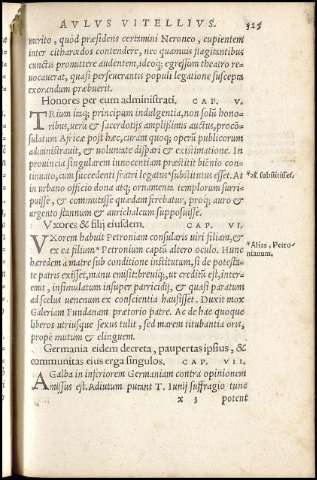 AVLVS VITELLIVS. 325
merito, quòd præsidens certamini Neroneo, cupientem
inter citharœdos contendere, nec quamuis flagitantibus
cunctis promittere audentem, ideoq; egressum theatro re-
uocauerat, quasi perseuerantis populi legatione suscepta
exorandum præbuerit.
Honores per eum administrati. CAP. V.
TRium itaq; principum indulgentia, non solùm hono-
ribus, uerù & sacerdotijs amplissimis auctus, procõ-
sulatum Africæ post hæc, curam quoq; operũ publicorum
administrauit, & uoluntate dispari & existimatione. In
prouincia singularem innocentiam præstitit biẽnio conti-
nuato, cum succedenti fratri legatus *substitutus esset. At
*al. substitisset.
in urbano officio dona atq; ornamenta templorum surri-
puisse, & commutasse quædam ferebatur, proq; auro &
argento stannum & aurichalcum supposuisse.
Vxores & filij eiusdem. CAP. VI.
VXorem habuit Petroniam consularis uiri filiam, &
ex ea filium *Petronium captũ altero oculo. Hunc
*Alias, Petro-
nianum.
hæredem à matre sub conditione institutum, si de potesta-
te patris exisset, manu emisit: breuiq́;, ut creditũ est, inter-
emit, insimulatum insuper parricidij, & quasi paratum
ad scelus uenenum ex conscientia hausisset. Duxit mox
Galeriam Fundanam prætorio patre. Ac de hac quoque
liberos utriusque sexus tulit, sed marem titubantia oris,
propè mutum & elinguem.
Germania eidem decreta, paupertas ipsius, &
communitas eius erga singulos. CAP. VII.
A Galba in inferiorem Germaniam contra opinionem
missus est. Adiutum putant T. Iunij suffragio tunc
x 3 potent